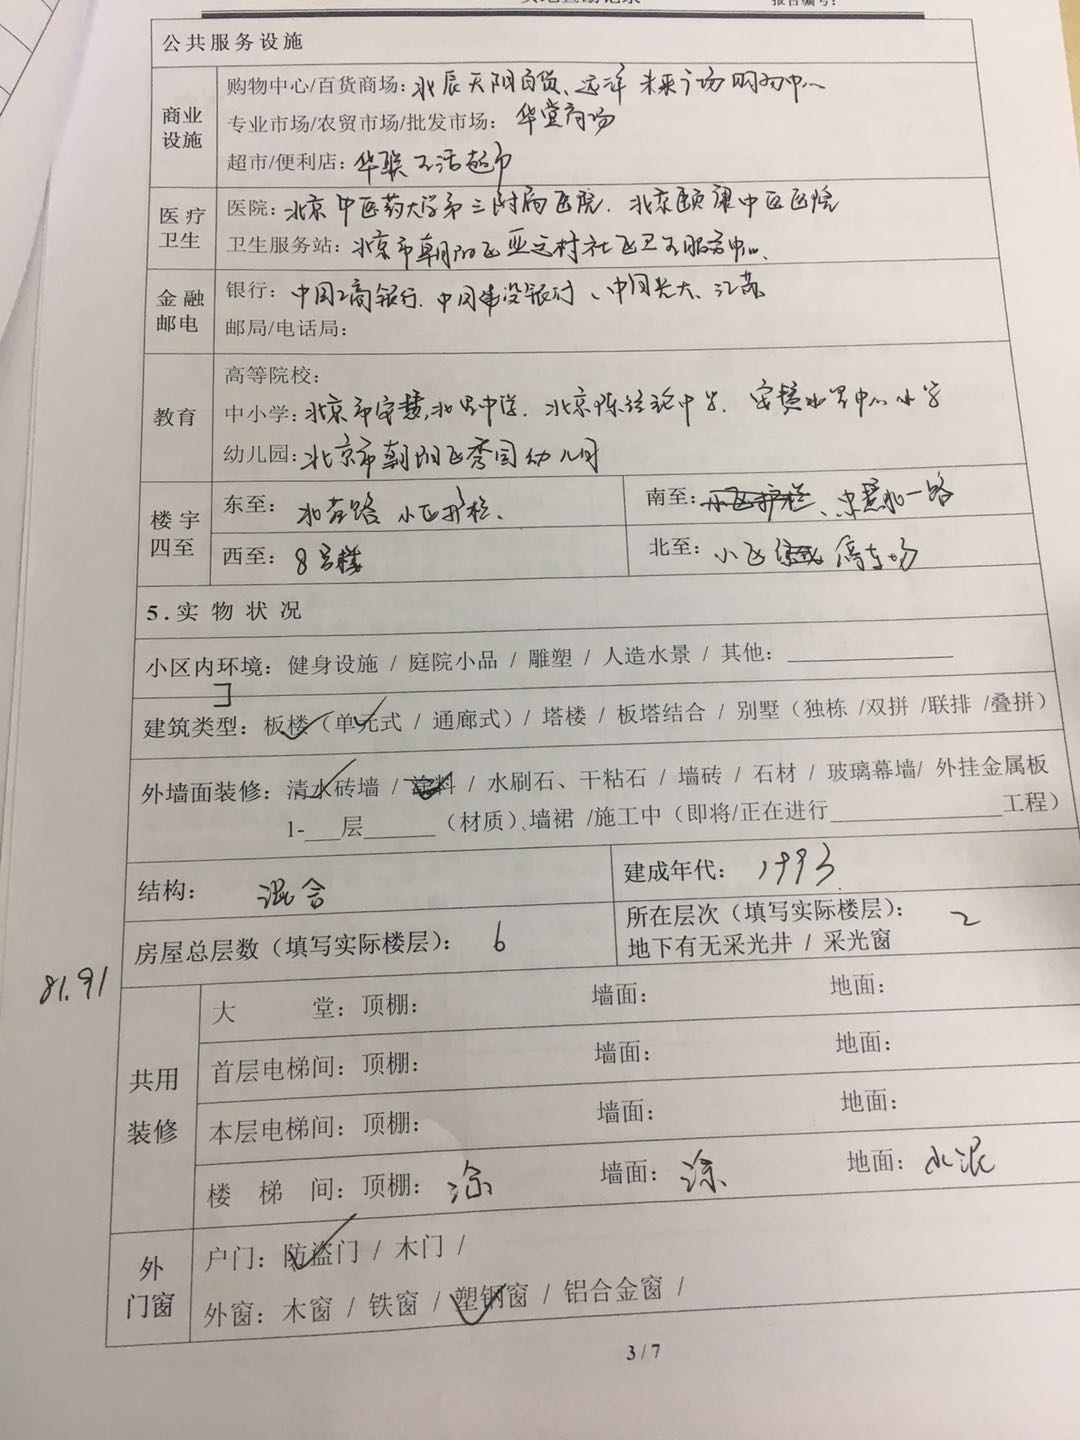 报告编号:
公共服务设施
商业设施
购物中心/百货商场: 北辰天阴百货、远洋未来广场购物中心
专业市场/农贸市场/批发市场: 华堂商场
超市/便利店: 华联生活超市
医疗卫生
医院: 北京中医药大学第三附属医院. 北京颐康中医医院
卫生服务站: 北京市朝阳区亚运村社区卫生服务中心、
金融邮电
银行: 中国工商银行. 中国建设银行、中国光大、江苏
邮局/电话局:
教育
高等院校:
中小学: 北京市安慧北里中学. 北京陈经纶中学. 安慧北里中心小学
幼儿园: 北京市朝阳区秀园幼儿园
楼宇四至
东至: 北苑路 小区护栏、
南至: 小区护栏、安慧北一路
西至: 8号楼
北至: 小区 停车场
5.实物状况
小区内环境: 健身设施 / 庭院小品 / 雕塑 / 人造水景 / 其他: ____
建筑类型: 板楼（单元式 / 通廊式）/ 塔楼 / 板塔结合 / 别墅（独栋 /双拼 /联排 /叠拼）
外墙面装修: 清水砖墙 / 涂料 / 水刷石、干粘石 / 墙砖 / 石材 / 玻璃幕墙/ 外挂金属板
1-___层______（材质）、墙裙 /施工中（即将/正在进行____工程）
结构: 混合
建成年代: 1993
房屋总层数（填写实际楼层）: 6
所在层次（填写实际楼层）: 2
地下有无采光井 / 采光窗
81.91
共用装修
大堂: 顶棚: 墙面: 地面:
首层电梯间: 顶棚: 墙面: 地面:
本层电梯间: 顶棚: 墙面: 地面:
楼梯间: 顶棚: 涂 墙面: 涂 地面: 水泥
外门窗
户门: 防盗门 / 木门 /
外窗: 木窗 / 铁窗 / 塑钢窗 / 铝合金窗 /
3 / 7